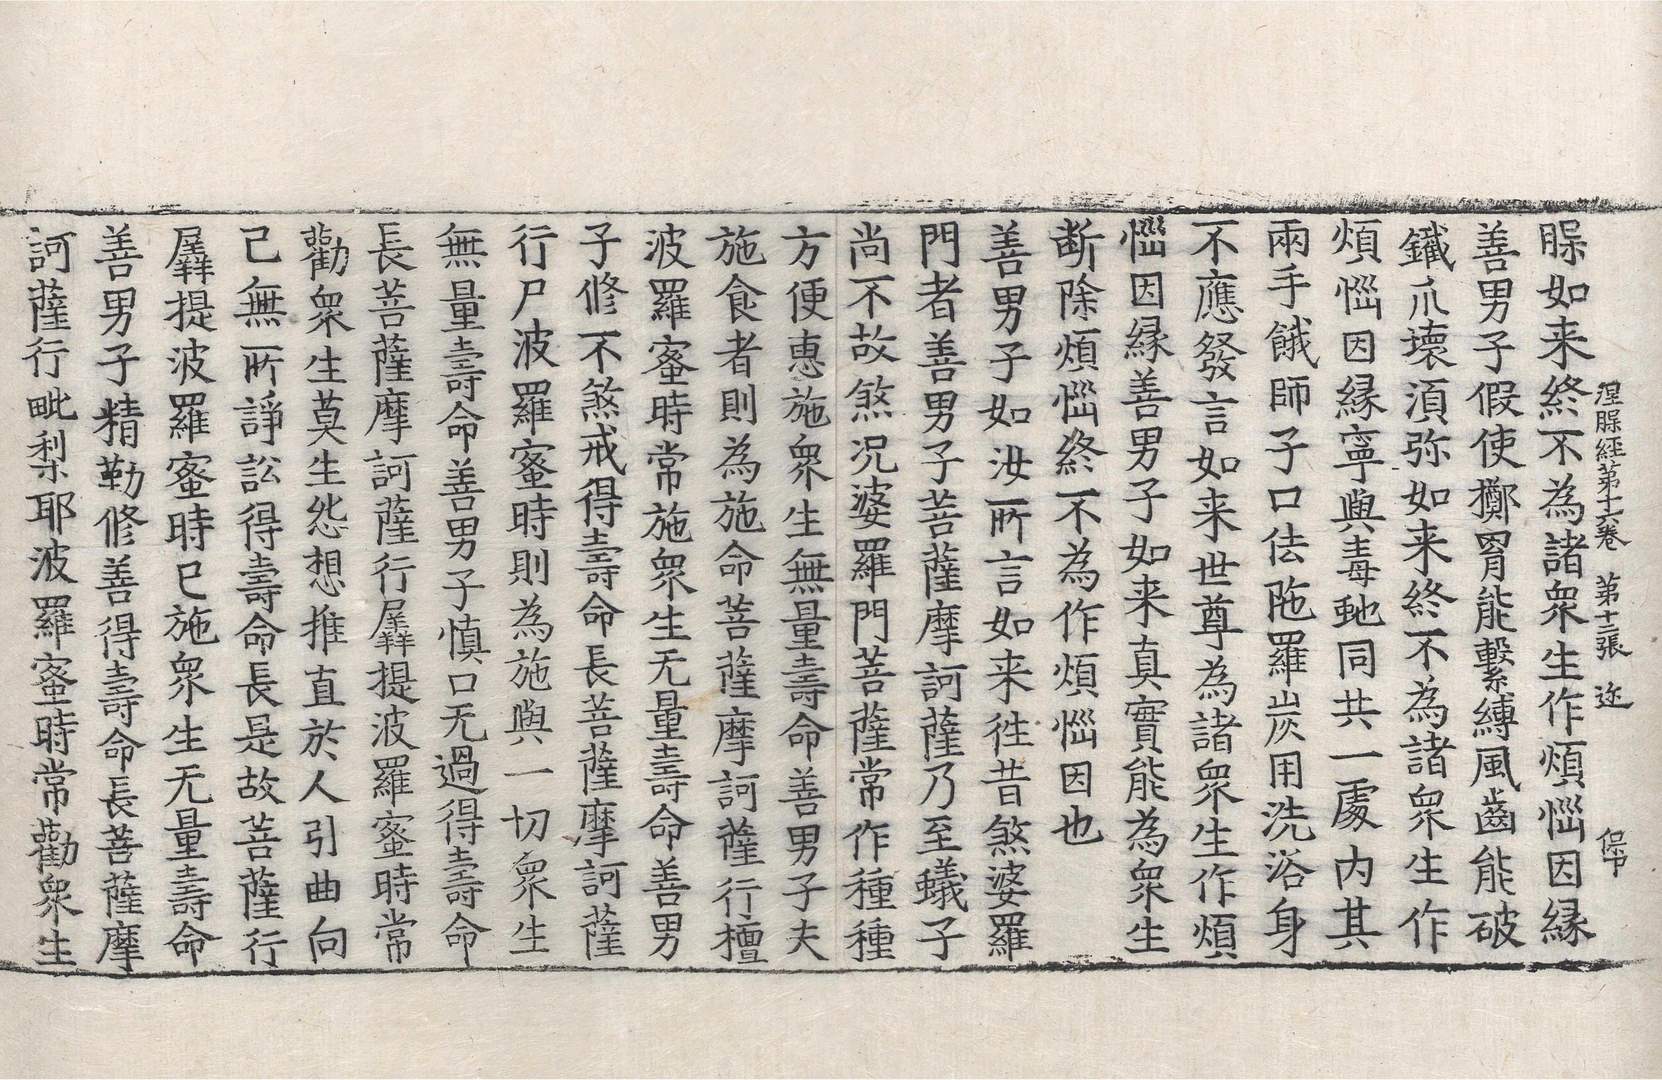 涅槃經第十六卷　第十二張　迩　保中
槃如来終不為諸衆生作煩惱因縁
善男子假使擲罥能繫縛風齒能破
鐵爪壞湏弥如来終不為諸衆生作
煩惱因縁寧與毒虵同共一處内其
兩手餓師子口佉陁羅炭用洗浴身
不應發言如来世尊為諸衆生作煩
惱因縁善男子如来真實能為衆生
断除煩惱終不為作煩惱因也
善男子如汝所言如来徃昔煞婆羅
門者善男子菩薩摩訶薩乃至蟻子
尚不故煞况婆羅門菩薩常作種種
方便惠施衆生無量壽命善男子夫
施食者則為施命菩薩摩訶薩行檀
波羅蜜時常施衆生无量壽命善男
子修不煞戒得壽命長菩薩摩訶薩
行尸波羅蜜時則為施與一切衆生
無量壽命善男子慎口无過得壽命
長菩薩摩訶薩行羼提波羅蜜時常
勸衆生莫生怨想推直於人引曲向
己無所諍訟得壽命長是故菩薩行
羼提波羅蜜時已施衆生无量壽命
善男子精勤修善得壽命長菩薩摩
訶薩行毗梨耶波羅蜜時常勸衆生